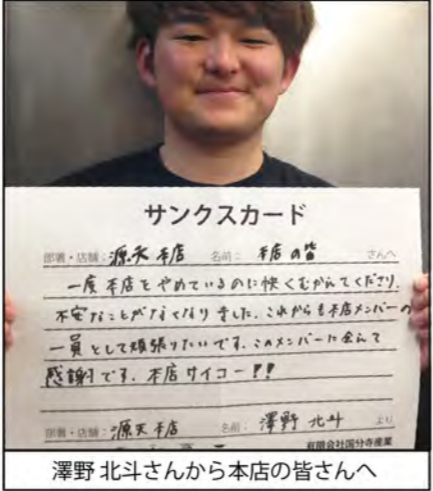 サンクスカード
部署・店舗：源天 本店 名前：本店の皆 さんへ
一度本店をやめているのに快くむかえてくださり、
不安なことがなくなりました。これからも本店メンバーの
一員として頑張りたいです。このメンバーに会えて
感謝です。本店サイコー！！
部署・店舗：源天本店 名前：澤野 北斗 より
有限会社国分寺産業
澤野 北斗さんから本店の皆さんへ